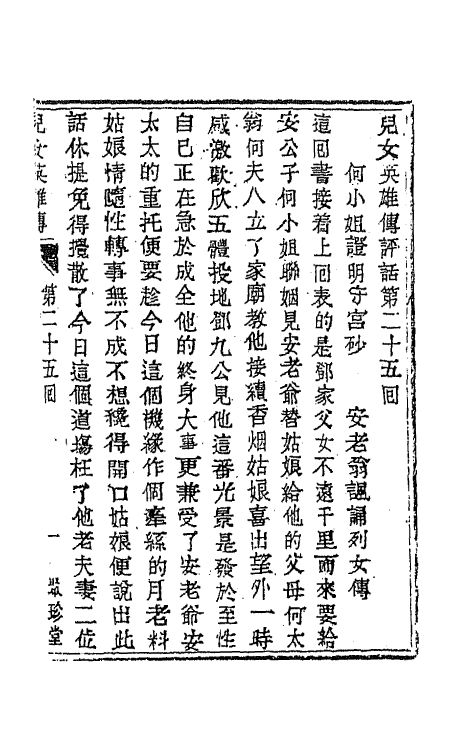 兒女英雄傳評話第二十五回
何小姐證明守宮砂　安老翁諷誦列女傳
這回書接着上回表的是鄧家父女不遠千里而來要給
安公子何小姐聯姻見安老爺替姑娘給他的父母何太
翁何夫人立了家廟教他接續香烟姑娘喜出望外一時
感激歐欣五體投地鄧九公見他這番光景是發於至性
自己正在急於成全他的終身大事更兼受了安老爺安
太太的重托便要趁今日這個機緣作個牽絲的月老料
姑娘情隨性轉事無不成不想纔得開口姑娘便說出此
話休提免得攪散了今日這個道塲枉了他老夫妻二位
兒女英雄傳　第二十五回　一　聚珍堂